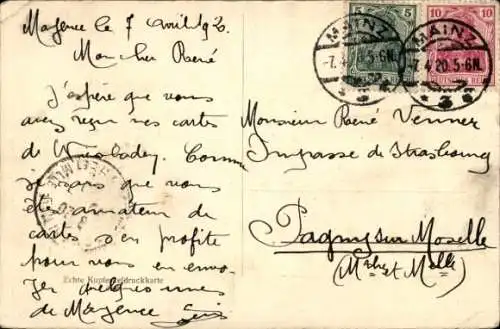 Mayence le 7 Avril 192.
Mon cher René
J'espère que vous
avez reçu nos cartes
de Wiesbaden. Comme
je sais que vous
êtes amateur de
cartes j'en profite
pour vous en envo-
yer quelques unes
de Mayence
Echte Kupfertiefdruckkarte
5
10
MAINZ
-7.4.20.5-6N.
* 3
MAINZ
-7.4.20.5-6N.
* 3
Monsieur René Venner
Impasse de Strasbourg
Pagny sur Moselle
(Mrthe et Mlle)